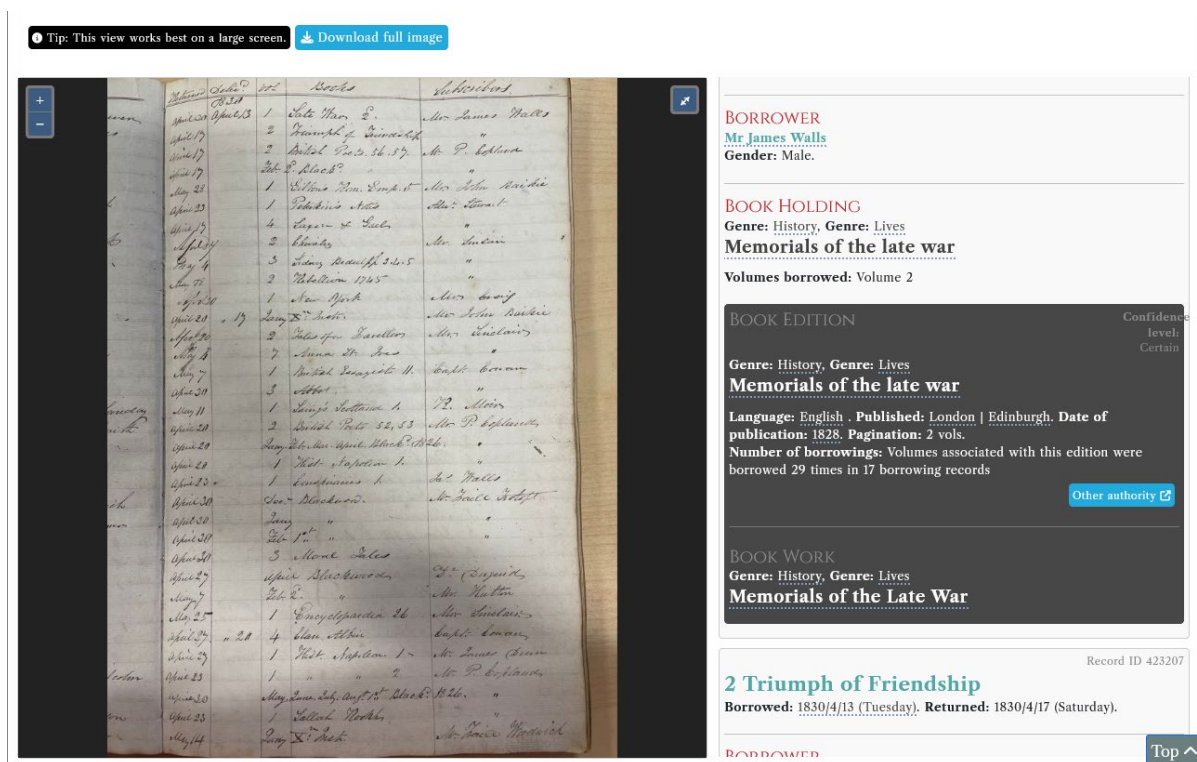 Tip: This view works best on a large screen. Download full image
Returned Deliv.d vol Books Subscribers
1830
April 20 April 13 1 Late War 2. Mr James Walls
April 17 2 Triumph of Friendship "
April 17 2 British Poets. 36.37. Mr P. Copland
April 17 Feb. 2. Black.d "
May 28 1 Gibbon's Rom. Emp. 5 Mr John Baikie
April 23 1 Stewart
April 17 4 "
2 Chivalry Mr Sinclair
May 4 3 Sidney 3.4.5 "
May 11 2 Rebellion 1745
1 New York Mrs
April 20 " 17 Jany Mr John Baikie
2 Tales of a Traveller Mr Sinclair
May 4 7 Anna St. Ives "
July 7 1 British Essayists 11. Capt. Cowan
April 30 3 Abbot "
May 11 1 Laing's Scotland 1.
April 20 2 British Poets 52, 53 Mr P. Copland
April 20 Jany. Feb. Mar. April. Black.d 1826. "
April 20 1 Hist. Napoleon 1. "
April 23 1 Conspiracies 1. Walls
April 30 Blackwood.
April 30 Jany " "
April 30 Feb " "
April 30 3 Tales
April 27 April Blackwood
May 7 Feb. 2. " Mr Hutton
May 25 1 Encyclopaedia 26 Mr Sinclair
April 27 " 20 4 Clan Albin Capt. Cowan
April 27 1 Hist. Napoleon 1 Mr James
April 23 1 " " 2 Mr P Copland
April 30 May, June, July, Aug.t Black.d 1826. "
April 23 1
May 14 Jany
BORROWER
Mr James Walls
Gender: Male.
BOOK HOLDING
Genre: History, Genre: Lives
Memorials of the late war
Volumes borrowed: Volume 2
BOOK EDITION
Confidence level: Certain
Genre: History, Genre: Lives
Memorials of the late war
Language: English . Published: London | Edinburgh. Date of
publication: 1828. Pagination: 2 vols.
Number of borrowings: Volumes associated with this edition were
borrowed 29 times in 17 borrowing records
Other authority
BOOK WORK
Genre: History, Genre: Lives
Memorials of the Late War
Record ID 423207
2 Triumph of Friendship
Borrowed: 1830/4/13 (Tuesday). Returned: 1830/4/17 (Saturday).
BORROWER
Top